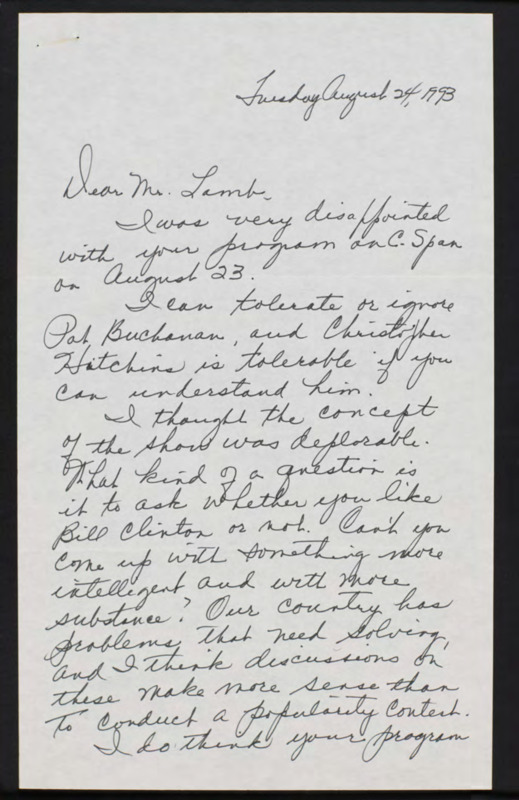 Tuesday August 24, 1993
Dear Mr. Lamb,
I was very disappointed
with your program on C-Span
on August 23.
I can tolerate or ignore
Pat Buchanan, and Christopher
Hutchins is tolerable if you
can understand him.
I thought the concept
of the show was deplorable.
What kind of a question is
it to ask whether you like
Bill Clinton or not. Can't you
come up with something more
intelligent and with more
substance? Our country has
problems that need solving,
and I think discussions on
these make more sense than
to conduct a popularity contest.
I do think your program